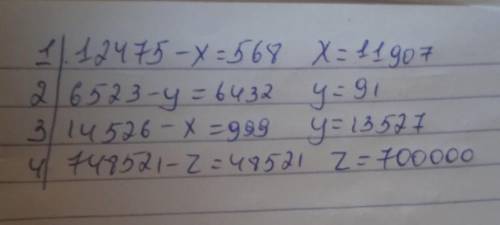 1 12475-x=568 x=11907
2 6523-y=6432 y=91
3 14526-x=999 y=13527
4 748521-z=48521 z=700000